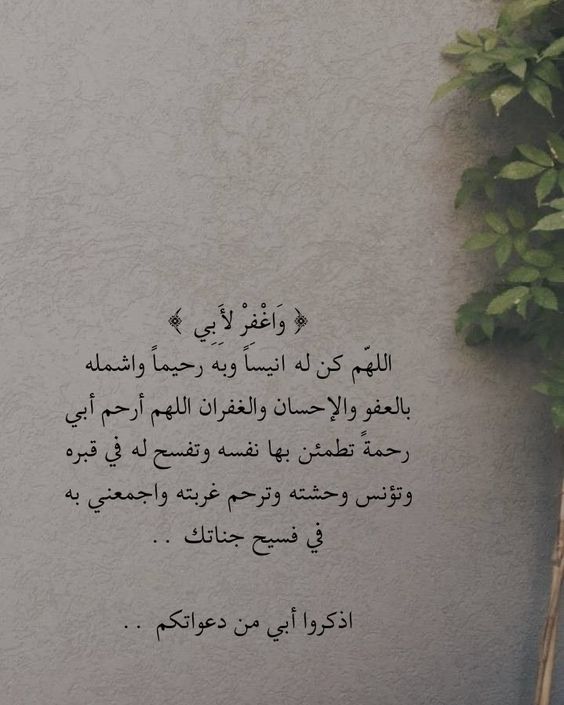 ﴿ وَاغْفِرْ لأَبِي ﴾
اللهّم كن له انيساً وبه رحيماً واشمله
بالعفو والإحسان والغفران اللهم أرحم أبي
رحمةً تطمئن بها نفسه وتفسح له في قبره
وتؤنس وحشته وترحم غربته واجمعني به
في فسيح جناتك . .
اذكروا أبي من دعواتكم . .